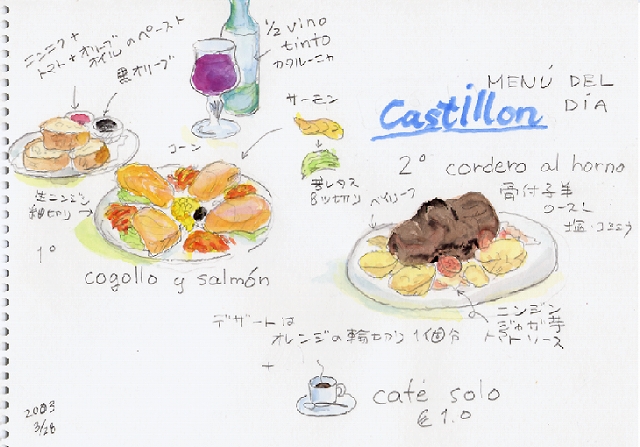 ニンニク+
トマト+オリーブ
オイルのペースト
黒オリーブ
1/2 vino
tinto
カタルーニャ
MENÚ DEL
DÍA
Castillon
サーモン
コーン
芽レタス
8ツ切り
生ニンジン
細切り
1°
cogollo y salmón
2° cordero al horno
骨付子羊
ロースト
塩・コショウ
ベイリーフ
ニンジン
ジャガ芋
トマトソース
デザートは
オレンジの輪切り 1個分
+
café solo
€ 1.0
2003
3/28